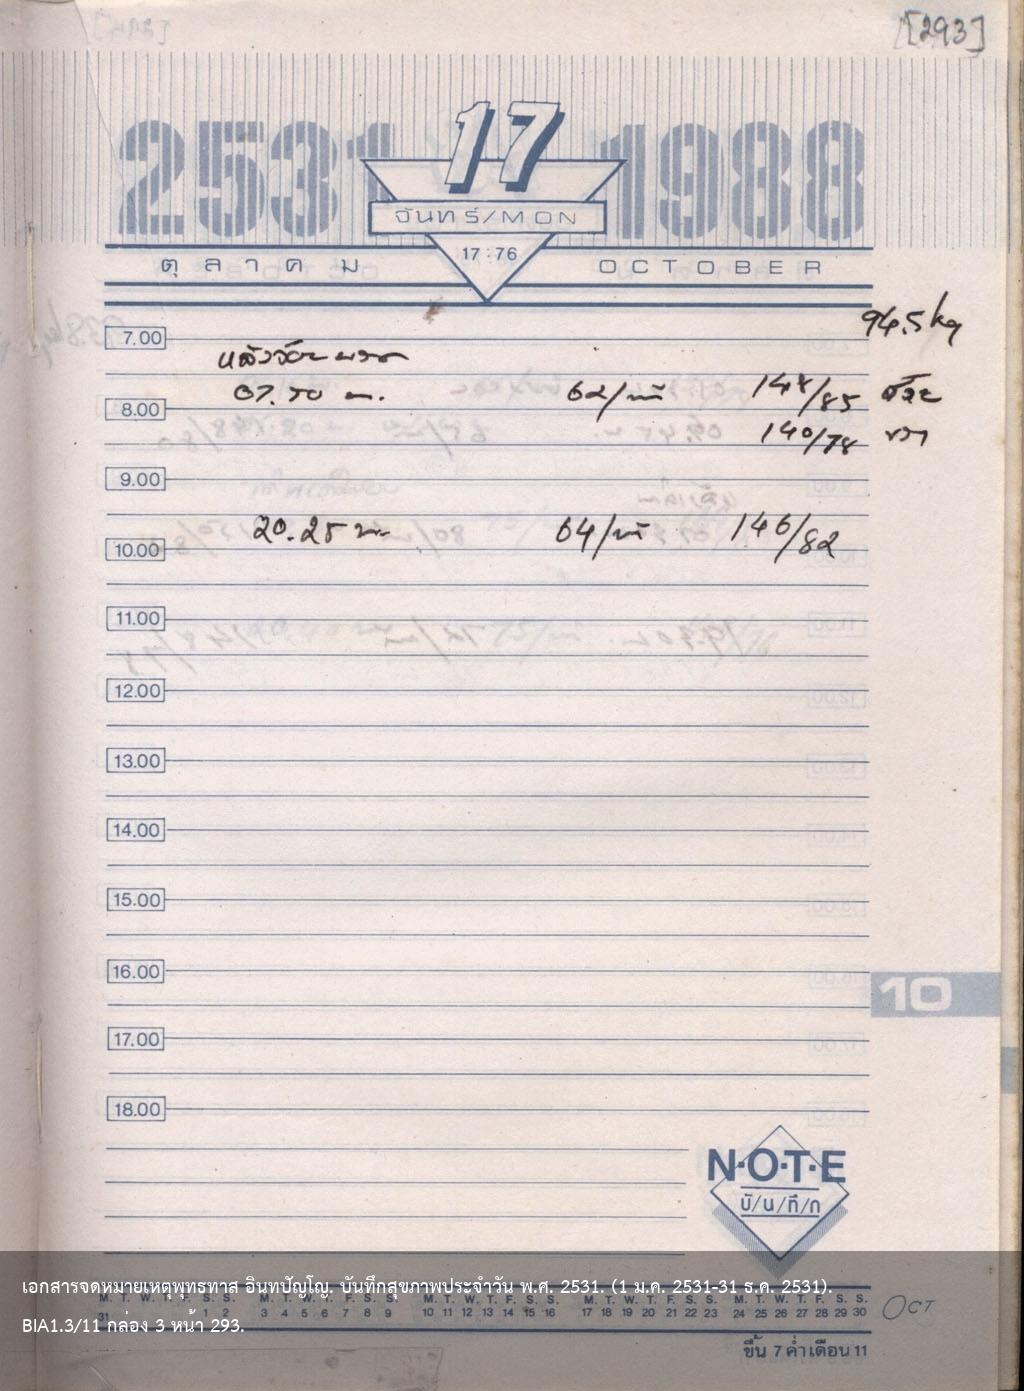 [293]
2531 17 1988
จันทร์/MON
17:76
ตุลาคม OCTOBER
94.5 kg
7.00
หลังฉัน
62/นาที 144/85 ซ้าย
8.00
140/78 ขวา
9.00
20.25 น. 64/นาที 146/82
10.00
11.00
12.00
13.00
14.00
15.00
16.00
10
17.00
18.00
N·O·T·E
บั/น/ทึ/ก
เอกสารจดหมายเหตุพุทธทาส อินทปัญโญ. บันทึกสุขภาพประจำวัน พ.ศ. 2531. (1 ม.ค. 2531-31 ธ.ค. 2531).
M. T. W. T. F. S. S. M. T. W. T. F. S. S. M. T. W. T. F. S. S. M. T. W. T. F. S. S. M. T. W. T. F. S. S.
31 1 2 3 4 5 6 7 8 9 10 11 12 13 14 15 16 17 18 19 20 21 22 23 24 25 26 27 28 29 30 OCT
BIA1.3/11 กล่อง 3 หน้า 293.
ขึ้น 7 ค่ำ เดือน 11